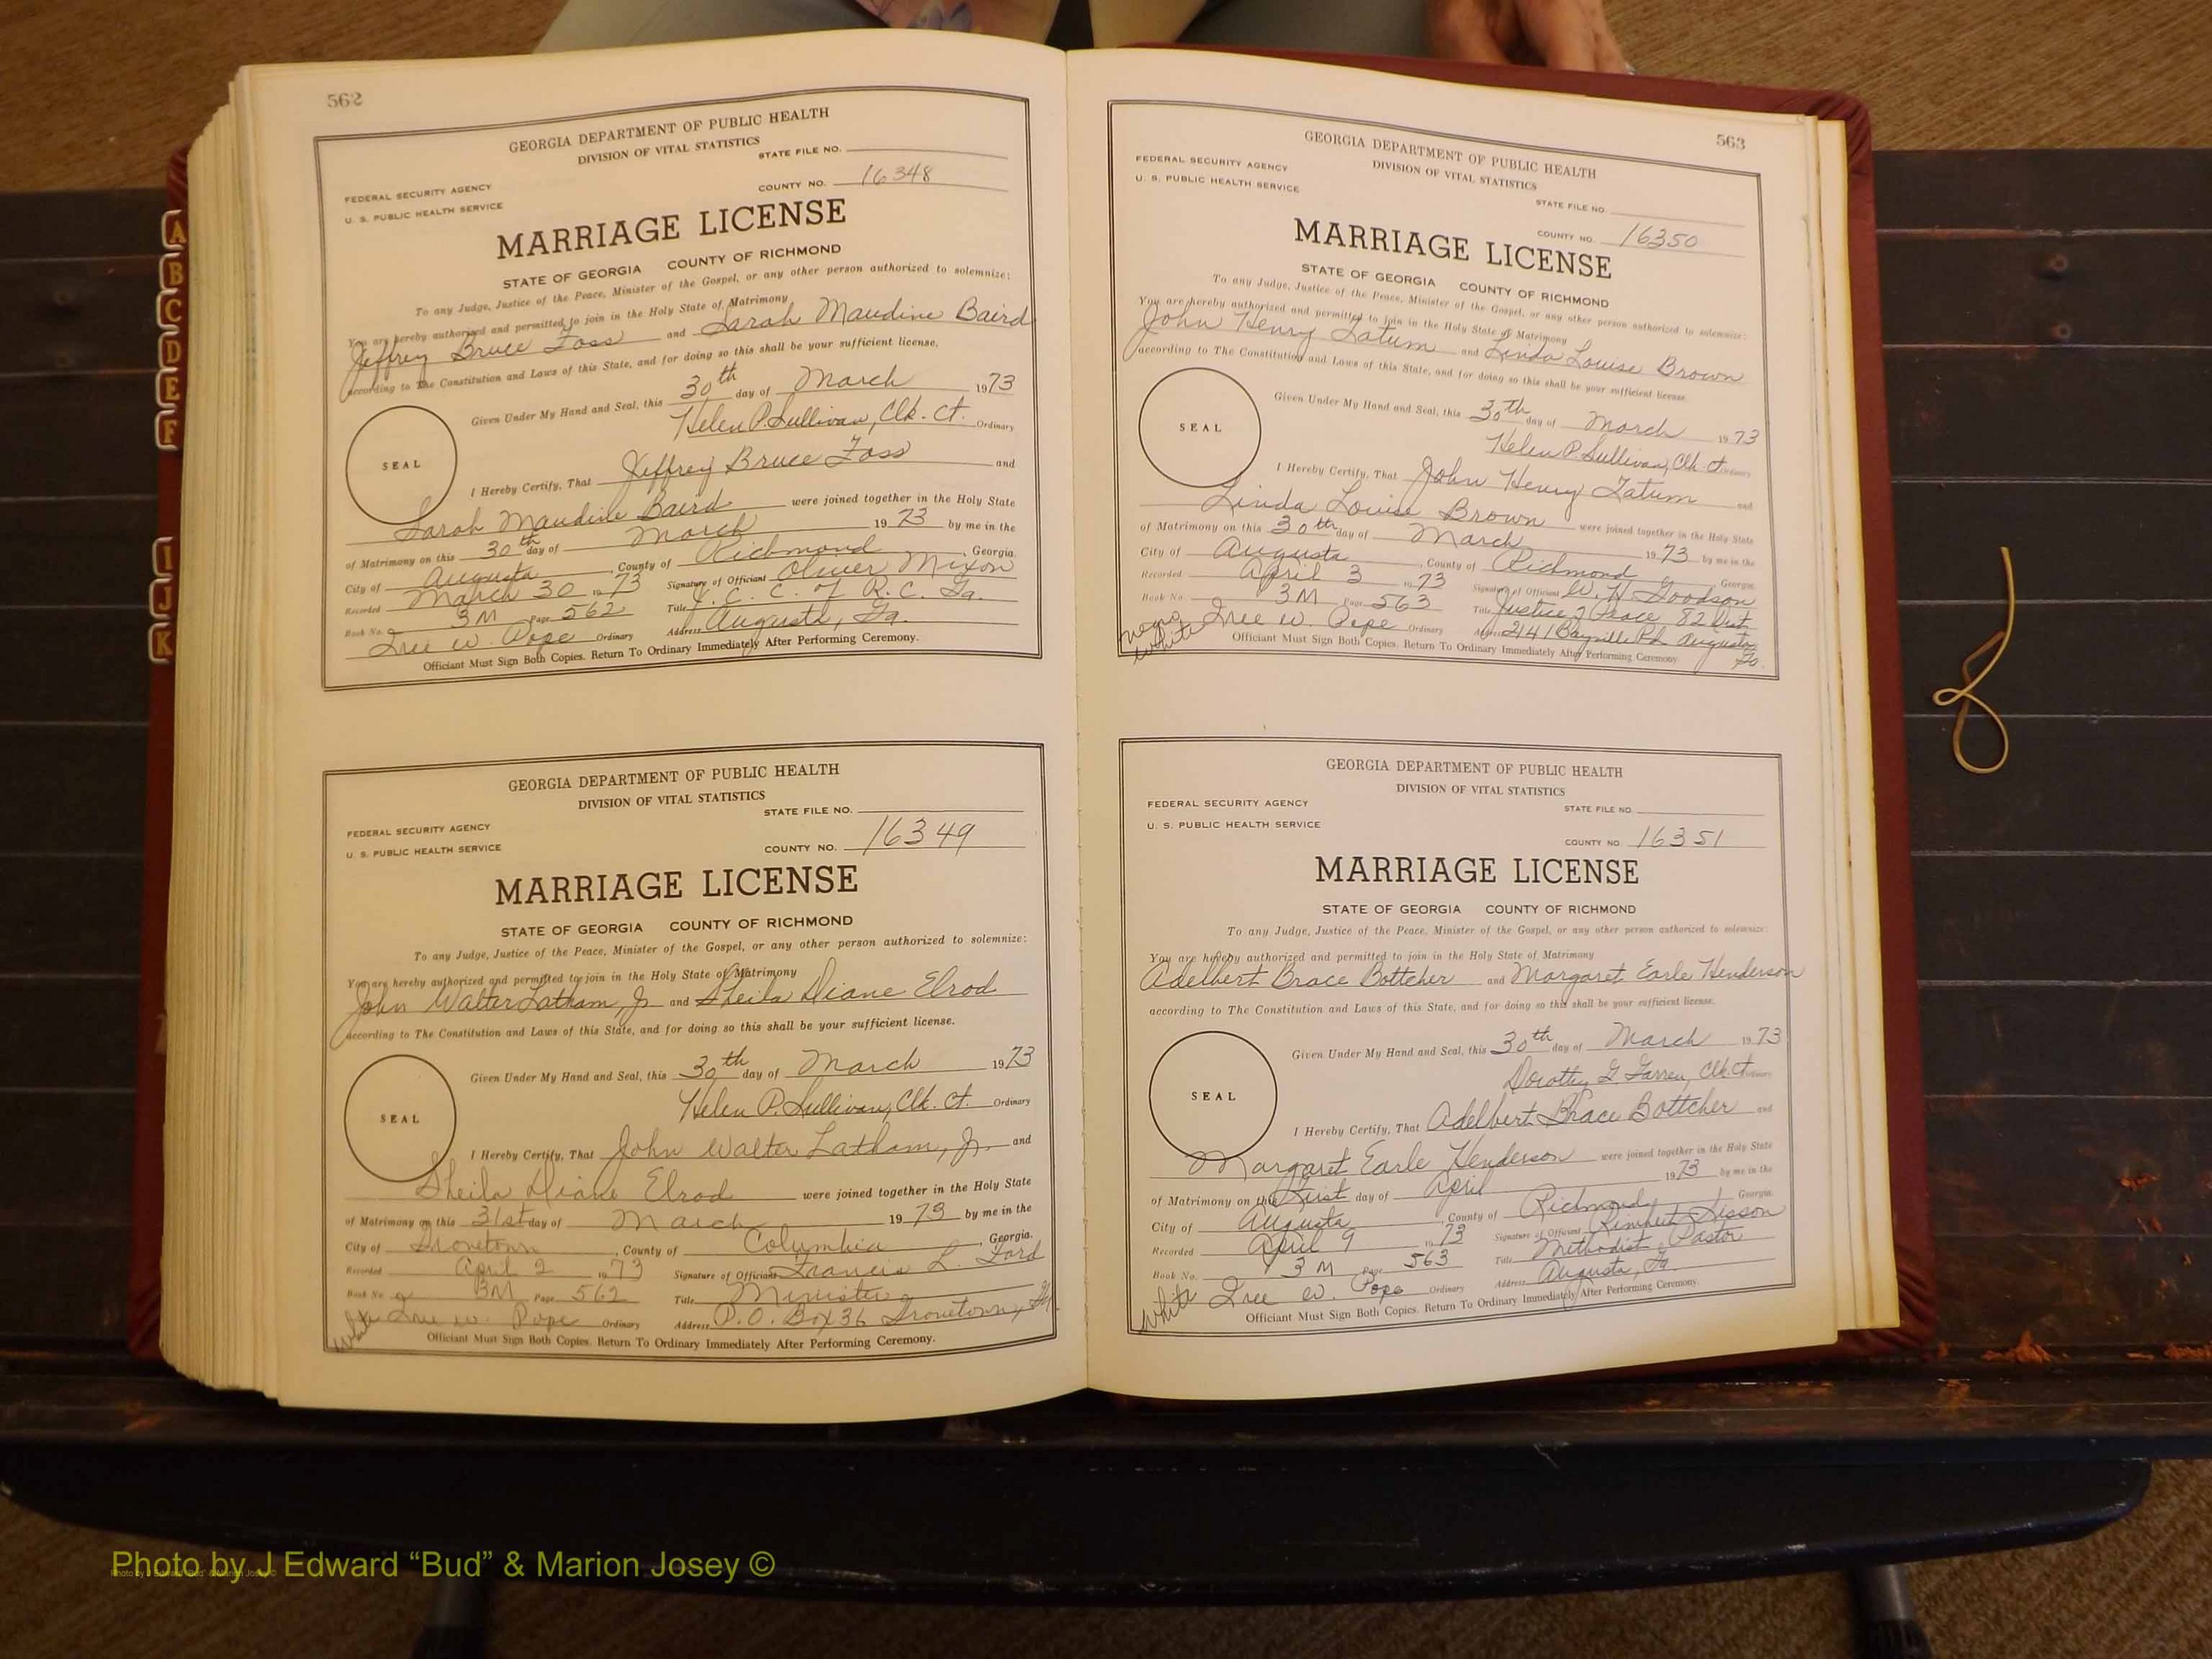 562
GEORGIA DEPARTMENT OF PUBLIC HEALTH
DIVISION OF VITAL STATISTICS
STATE FILE NO.
FEDERAL SECURITY AGENCY
COUNTY NO. 16348
U. S. PUBLIC HEALTH SERVICE
MARRIAGE LICENSE
STATE OF GEORGIA COUNTY OF RICHMOND
To any Judge, Justice of the Peace, Minister of the Gospel, or any other person authorized to solemnize:
You are hereby authorized and permitted to join in the Holy State of Matrimony
Jeffrey Bruce Foss and Sarah Maudine Baird
according to The Constitution and Laws of this State, and for doing so this shall be your sufficient license.
Given Under My Hand and Seal, this 30th day of March 1973
Helen P. Sullivan, Clk. Ct. Ordinary
SEAL
I Hereby Certify, That Jeffrey Bruce Foss and
Sarah Maudine Baird were joined together in the Holy State
of Matrimony on this 30th day of March 1973 by me in the
City of Augusta, County of Richmond, Georgia.
Recorded March 30 1973 Signature of Officiant Oliver Mixon
Book No. 3M Page 562 Title J. C. C. of R. C. Ga.
W. Pope Ordinary Address Augusta, Ga.
Officiant Must Sign Both Copies. Return To Ordinary Immediately After Performing Ceremony.
GEORGIA DEPARTMENT OF PUBLIC HEALTH
DIVISION OF VITAL STATISTICS
STATE FILE NO.
FEDERAL SECURITY AGENCY
U. S. PUBLIC HEALTH SERVICE
COUNTY NO. 16349
MARRIAGE LICENSE
STATE OF GEORGIA COUNTY OF RICHMOND
To any Judge, Justice of the Peace, Minister of the Gospel, or any other person authorized to solemnize:
You are hereby authorized and permitted to join in the Holy State of Matrimony
John Walter Latham, Jr and Sheila Diane Elrod
according to The Constitution and Laws of this State, and for doing so this shall be your sufficient license.
Given Under My Hand and Seal, this 30th day of March 1973
Helen P. Sullivan, Clk. Ct. Ordinary
SEAL
I Hereby Certify, That John Walter Latham, Jr. and
Sheila Diane Elrod were joined together in the Holy State
of Matrimony on this 31st day of March 1973 by me in the
City of Grovetown, County of Columbia, Georgia.
Recorded April 2 1973 Signature of Officiant Francis L. Ford
Book No. 3M Page 562 Title Minister
white W. Pope Ordinary Address P.O. Box 36 Grovetown, Ga.
Officiant Must Sign Both Copies. Return To Ordinary Immediately After Performing Ceremony.
563
GEORGIA DEPARTMENT OF PUBLIC HEALTH
DIVISION OF VITAL STATISTICS
FEDERAL SECURITY AGENCY
U. S. PUBLIC HEALTH SERVICE
STATE FILE NO.
COUNTY NO. 16350
MARRIAGE LICENSE
STATE OF GEORGIA COUNTY OF RICHMOND
To any Judge, Justice of the Peace, Minister of the Gospel, or any other person authorized to solemnize:
You are hereby authorized and permitted to join in the Holy State of Matrimony
John Henry Tatum and Linda Louise Brown
according to The Constitution and Laws of this State, and for doing so this shall be your sufficient license.
Given Under My Hand and Seal, this 30th day of March 1973
Helen P. Sullivan, Clk. Ct. Ordinary
SEAL
I Hereby Certify, That John Henry Tatum and
Linda Louise Brown were joined together in the Holy State
of Matrimony on this 30th day of March 1973 by me in the
City of Augusta, County of Richmond Georgia.
Recorded April 3 1973 Signature of Officiant W. H. Goodson
Book No. 3M Page 563 Title Justice of Peace 82 Dist
negro white W. Pope Ordinary Address 2141 Rd Augusta Ga.
Officiant Must Sign Both Copies. Return To Ordinary Immediately After Performing Ceremony
GEORGIA DEPARTMENT OF PUBLIC HEALTH
DIVISION OF VITAL STATISTICS
FEDERAL SECURITY AGENCY
STATE FILE NO.
U. S. PUBLIC HEALTH SERVICE
COUNTY NO. 16351
MARRIAGE LICENSE
STATE OF GEORGIA COUNTY OF RICHMOND
To any Judge, Justice of the Peace, Minister of the Gospel, or any other person authorized to solemnize:
You are hereby authorized and permitted to join in the Holy State of Matrimony
Adelbert Brace Bottcher and Margaret Earle Henderson
according to The Constitution and Laws of this State, and for doing so this shall be your sufficient license.
Given Under My Hand and Seal, this 30th day of March 1973
Dorothy G. Farren, Clk. Ct. Ordinary
SEAL
I Hereby Certify, That Adelbert Brace Bottcher and
Margaret Earle Henderson were joined together in the Holy State
of Matrimony on this First day of April 1973 by me in the
City of Augusta, County of Richmond, Georgia.
Recorded April 9 1973 Signature of Officiant Rembert Sisson
Book No. 3M Page 563 Title Methodist Pastor
white W. Pope Ordinary Address Augusta, Ga.
Officiant Must Sign Both Copies. Return To Ordinary Immediately After Performing Ceremony.
A
B
C
D
E
F
I
J
K
Photo by J Edward “Bud” & Marion Josey ©
Photo by J Edward “Bud” & Marion Josey ©